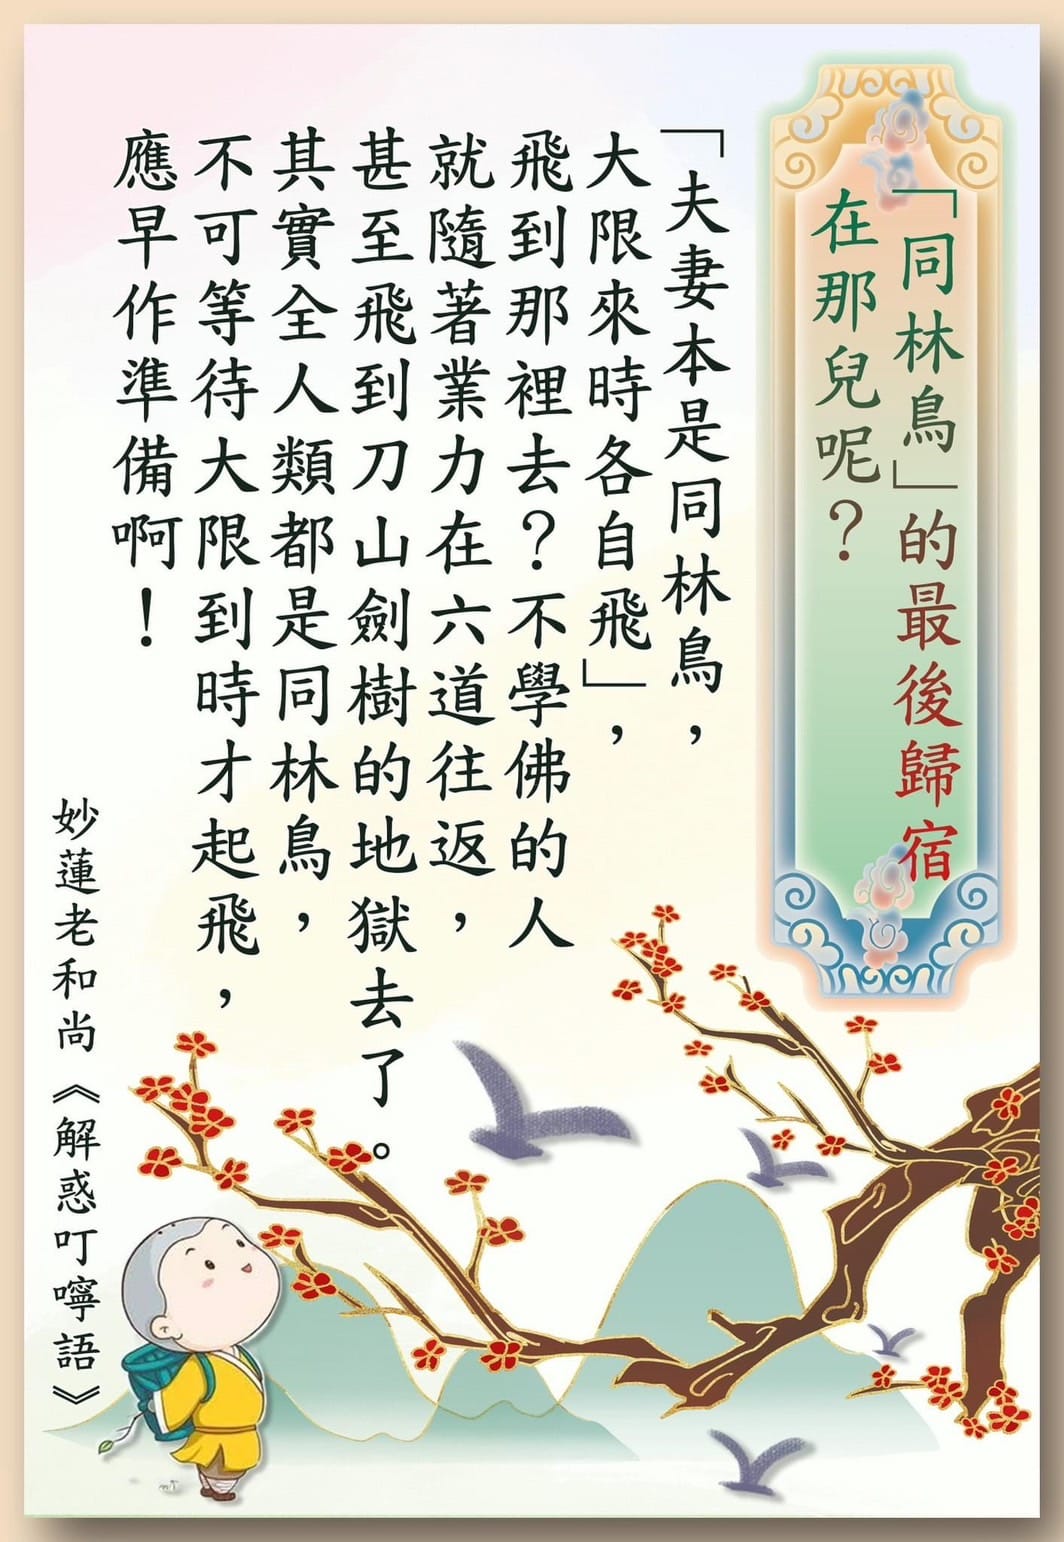 「同林鳥」的最後歸宿
在那兒呢？
「夫妻本是同林鳥，
大限來時各自飛」，
飛到那裡去？不學佛的人
就隨著業力在六道往返，
甚至飛到刀山劍樹的地獄去了。
其實全人類都是同林鳥，
不可等待大限到時才起飛，
應早作準備啊！
妙蓮老和尚《解惑叮嚀語》